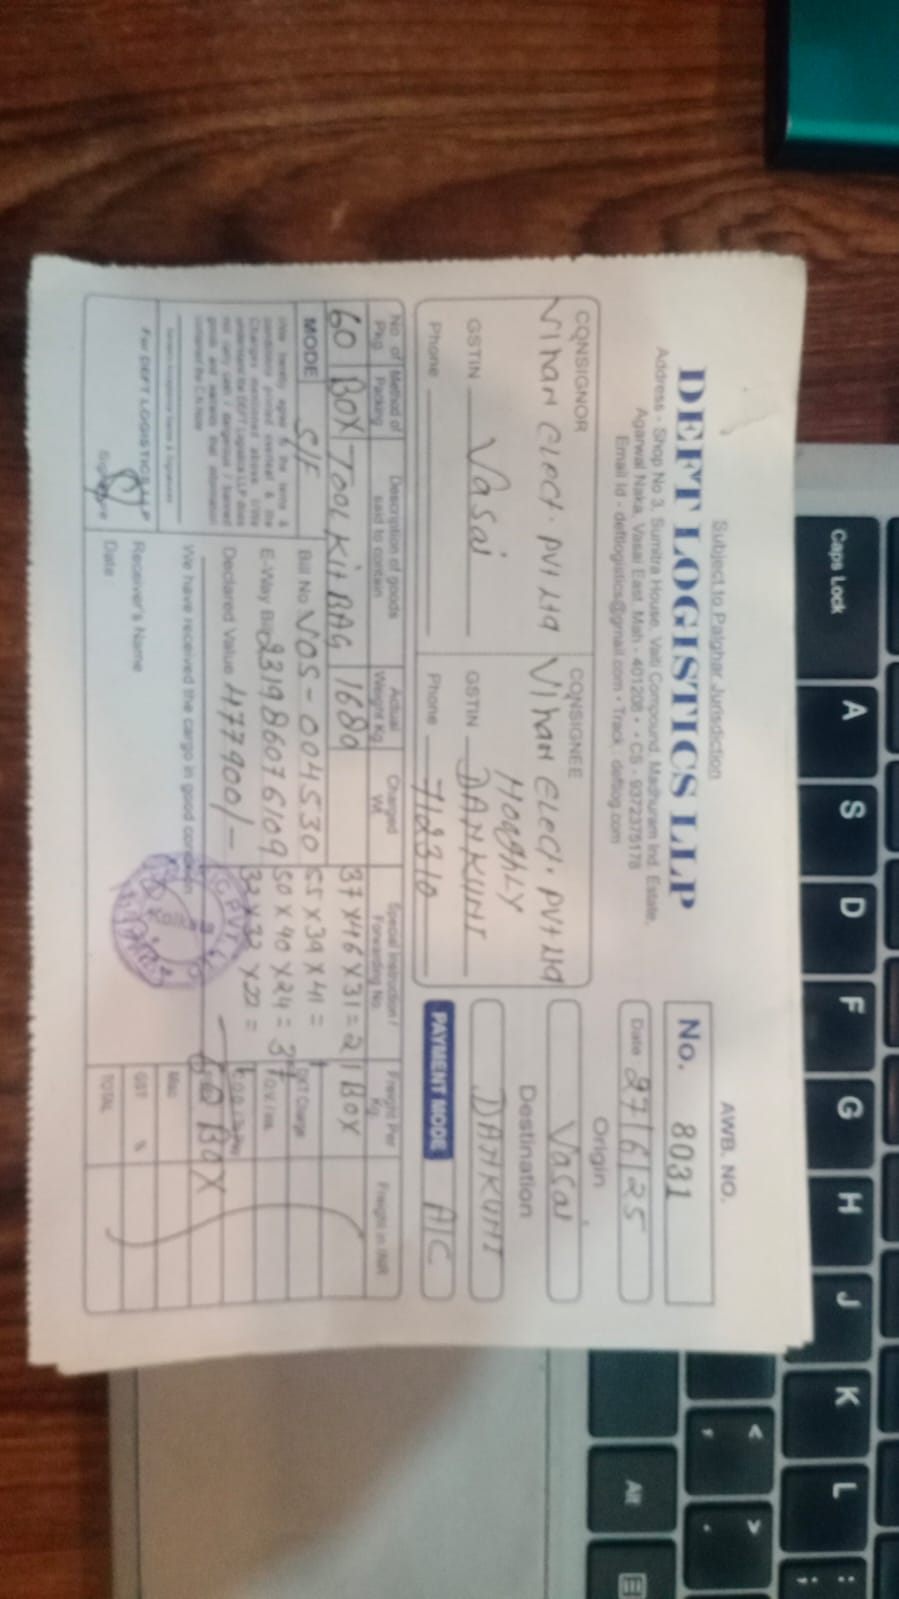 Subject to Palghar Jurisdiction
DEFT LOGISTICS LLP
Address - Shop No 3, Sumitra House, Valti Compound, Madhuram Ind. Estate,
Agarwal Naka, Vasai East, Mah - 401208 • CS - 9372375178
Email Id - deftlogistics@gmail.com • Track : deftlog.com
AWB. NO.
No. 8031
Date 27/6/25
Origin
Vasai
Destination
DANKUNI
PAYMENT MODE A/C
CONSIGNOR
Vihan Elect. Pvt Ltd
GSTIN Vasai
Phone
CONSIGNEE
Vihan Elect. Pvt Ltd
HOOGHLY
GSTIN DANKUNI
Phone 712310
No. of Pkg. Method of Packing Description of goods said to contain Actual Weight Kg. Charged Wt. Special Instruction / Forwarding No. Freight Per Kg. Freight in INR
60 BOX TOOL KIT BAG 1680 37x46x31=21 BOX
MODE S/F
Bill No. VOS-004530 55x39x41=
E-Way Bill 231986076109 50x40x24=
Declared Value 477900/-
DKT Charge
60 BOX
Misc
GST %
TOTAL
We have received the cargo in good condition
Receiver's Name
Date
For DEFT LOGISTICS LLP
Signature